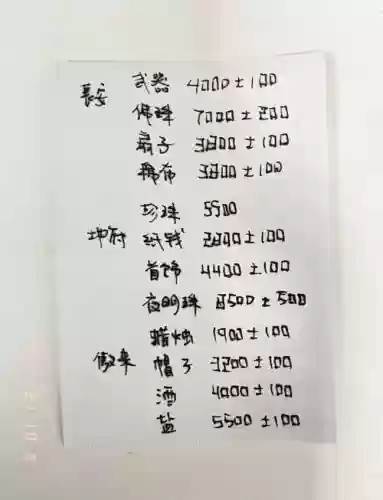 長安 武器 4000±100
佛珠 7000±200
扇子 3800±100
棉布 3800±100
珍珠 5500
地府 纸钱 2800±100
首饰 4400±100
夜明珠 8500±500
蜡烛 1900±100
傲来 帽子 3200±100
酒 4000±100
盐 5500±100